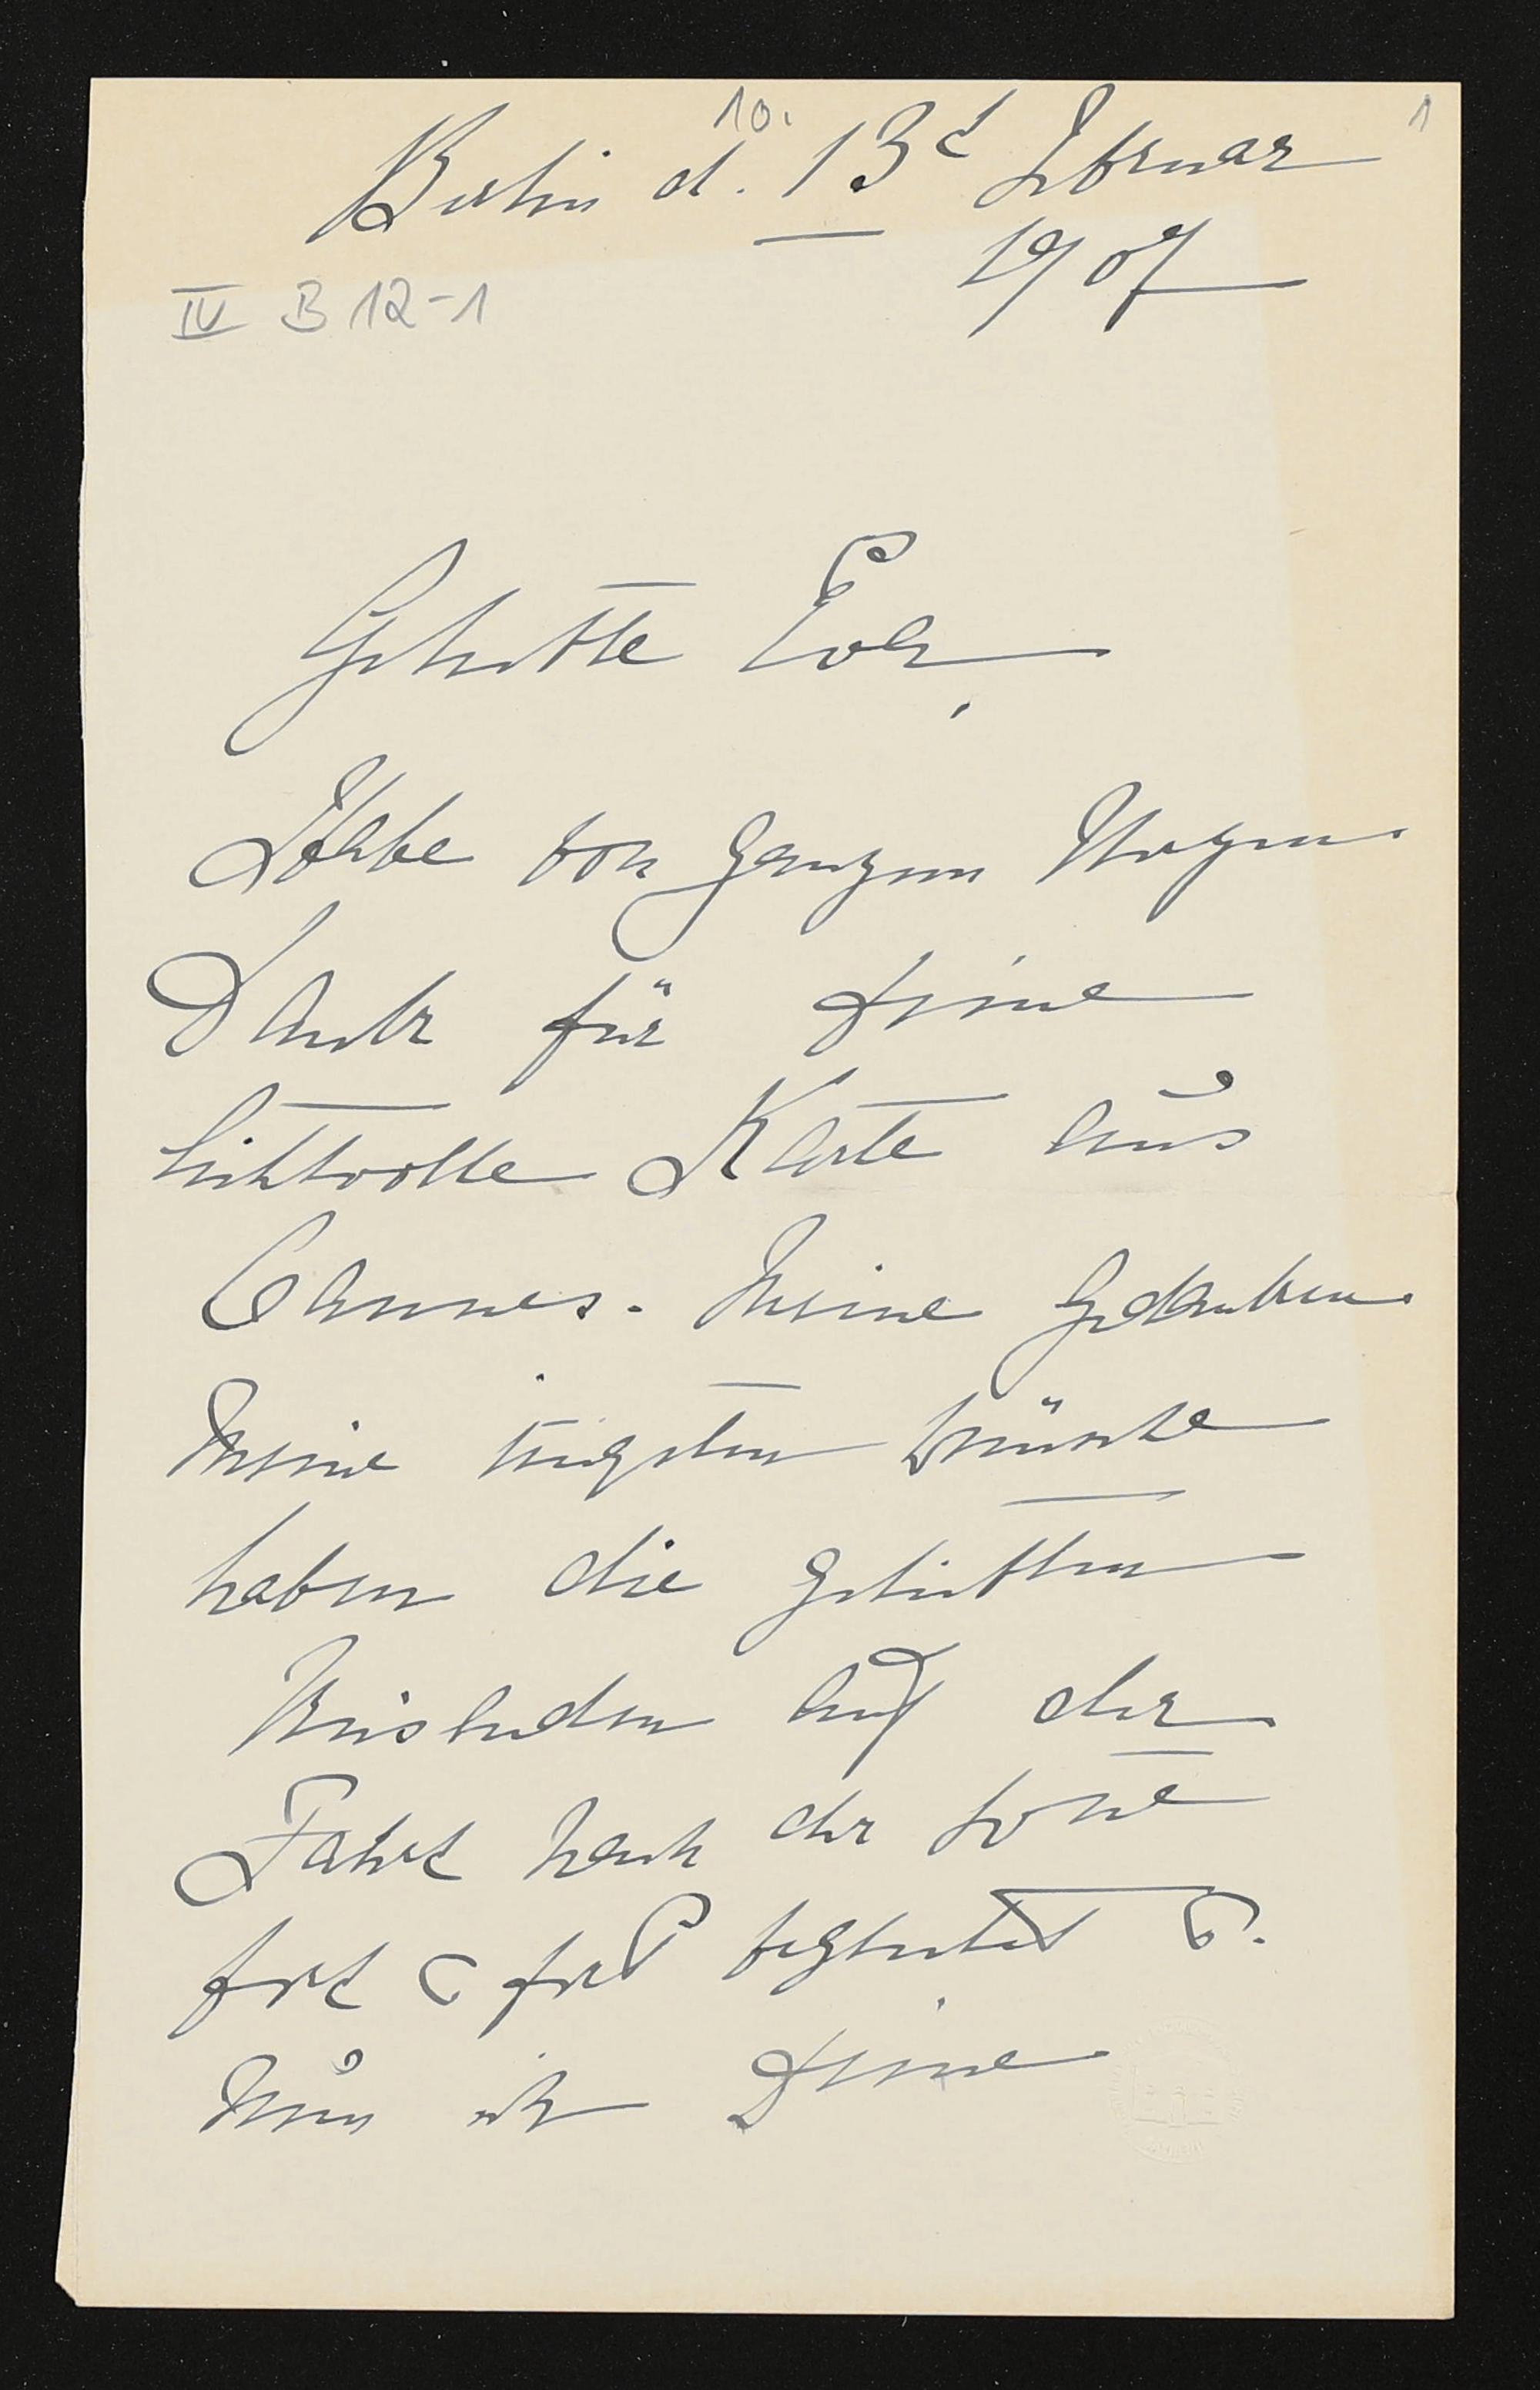 10.
1
Berlin d. 13t Februar
1907
IV B 12-1
Geliebte Eva,
Habe von ganzem Herzen
Dank für Deine
lichtvolle Karte aus
Cannes. Meine Gedanken
meine innigsten Wünsche
haben die geliebten
Reisenden auf der
Fahrt nach der Sonne
fort & fort begleitet &.
nun ich Deine